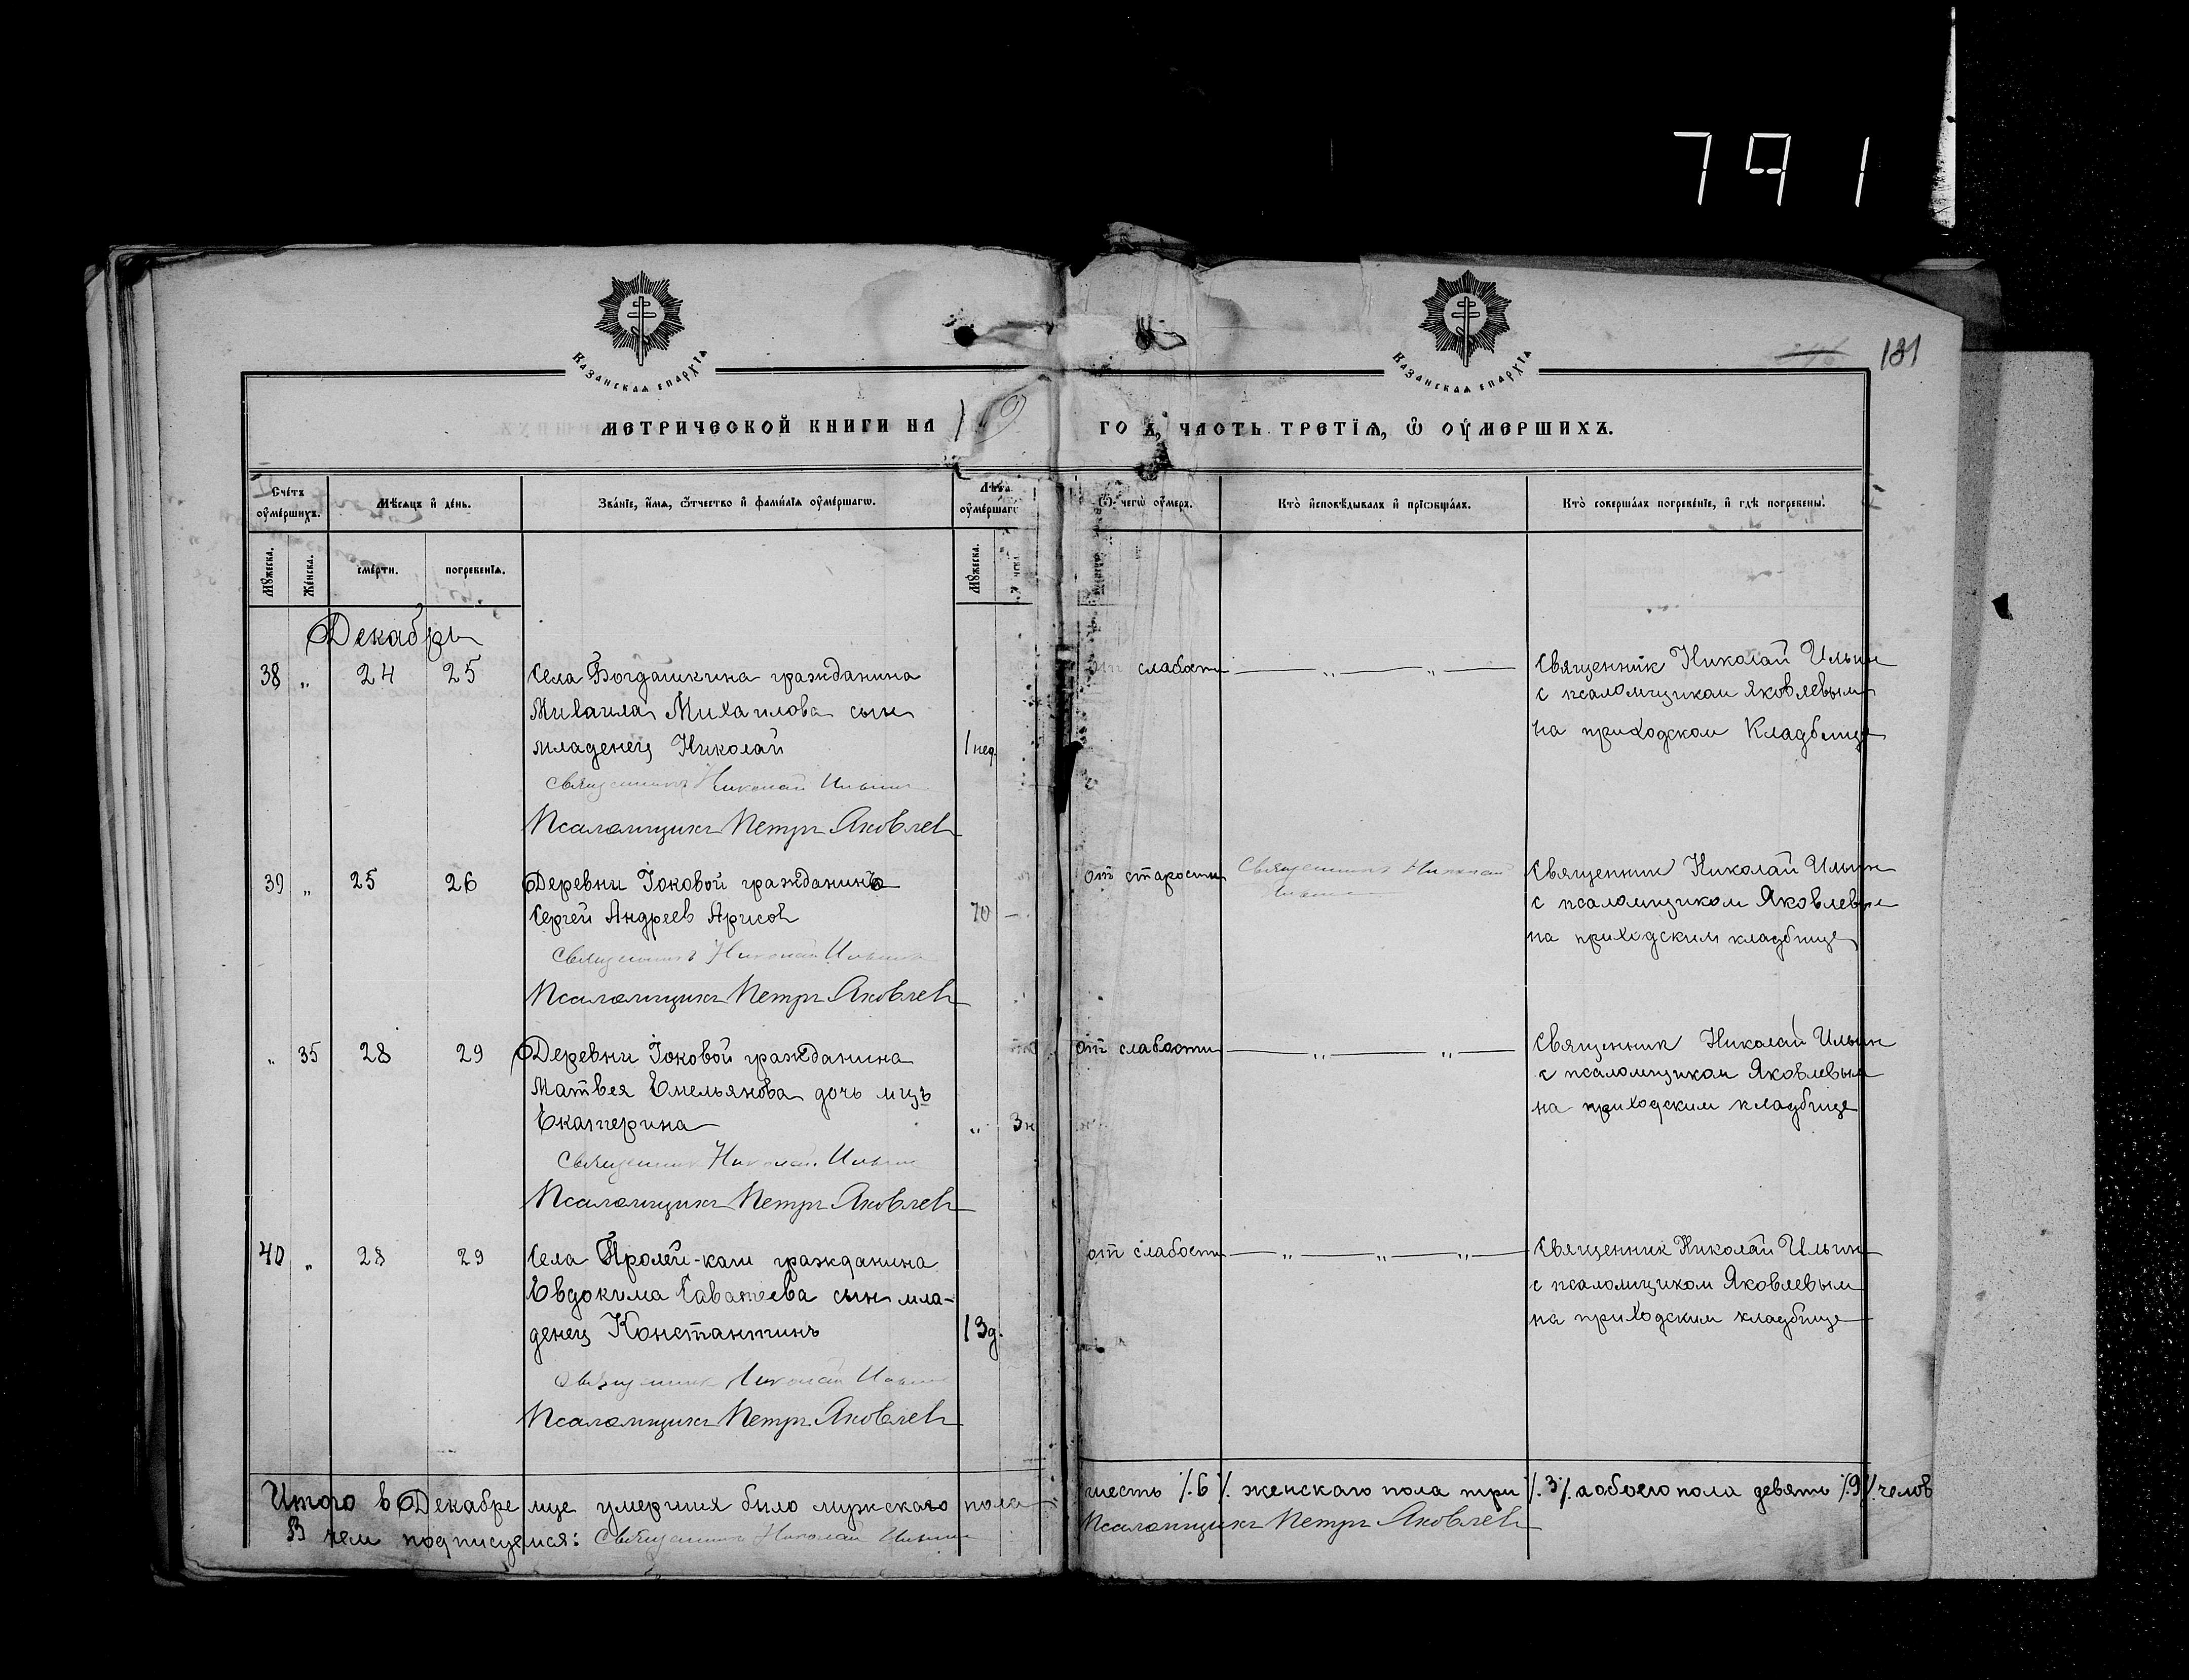 791
КАЗАНСКАѦ ЕПАРХІѦ
КАЗАНСКАѦ ЕПАРХІѦ
181
МЕТРИЧЕСКОЙ КНИГИ НА 19
ГО Ъ, ЧАСТЬ ТРЕТІѦ, Ѽ ОУМЕРШИХЪ.
Счетъ оумершихъ.
Мѣсѧцъ и день.
Званіе, имѧ, ѿчество и фамиліѧ оумершагѡ.
Лѣта оумершаг
Ѿ чегѡ оумеръ.
Кто исповѣдывалъ и пріѡбщалъ.
Кто совершалъ погребеніе, и гдѣ погребены.
Мꙋжеска.
Женска.
смерти.
погребеніѧ.
Мꙋжеска.
Декабрь
38 „ 24 25 Села Богдашкина гражданина
Михаила Михаилова сын
младенец Николай 1 нед.
Священникъ Николай Ильин
Псаломщикъ Петръ Яковлев
от слабости — „ — „ —
Священник Николай Ильин
с псаломщиком Яковлевым
на приходском Кладбище
39 „ 25 26 Деревни Токовой гражданинъ
Сергей Андреев Арисов 70 —
Священникъ Николай Ильин
Псаломщикъ Петръ Яковлев
от старости
Священникъ Николай
Ильин
Священник Николай Ильин
с псаломщиком Яковлевым
на приходским кладбище
„ 35 28 29 Деревни Токовой гражданина
Матвея Емельянова дочь мцъ
Екатерина „ 3н
Священник Николай Ильин
Псаломщикъ Петръ Яковлев
от слабости — „ — „ —
Священник Николай Ильин
с псаломщиком Яковлевым
на приходским кладбище
40 „ 28 29 Села Пролей-каши гражданина
Евдокима Саватеева сын мла-
денец Константинъ 13д.
Священник Николай Ильин
Псаломщикъ Петръ Яковлев
от слабости — „ — „ — „ —
Священник Николай Ильин
с псаломщиком Яковлевым
на приходским кладбище
Итого в Декабре мце умерших было мужскаго пола шесть ٪6٪ женскаго пола три ٪3٪ а обоего пола девять ٪9٪ челов
В чем подписуемся: Священникъ Николай Ильин
Псаломщикъ Петръ Яковлев